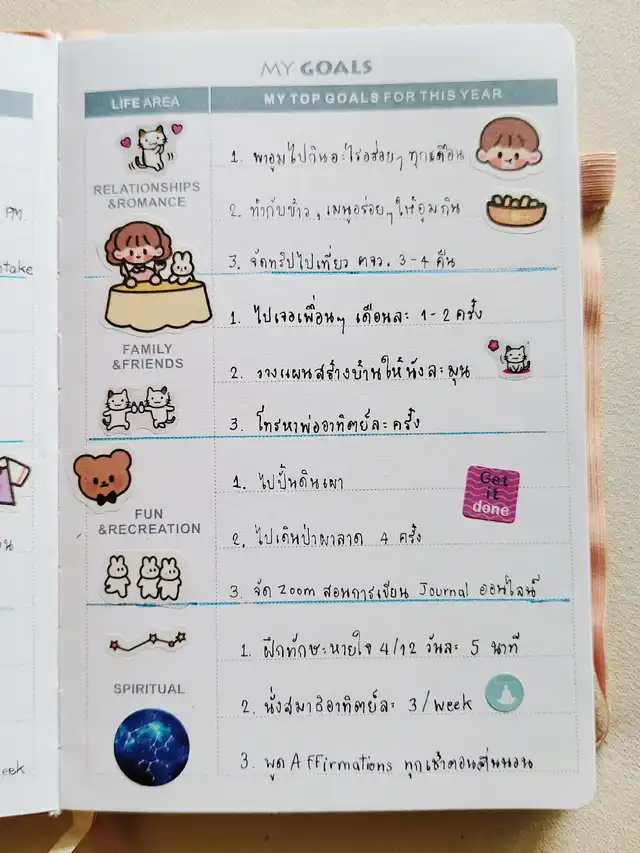 PM.
ntake
eek
MY GOALS
LIFE AREA
MY TOP GOALS FOR THIS YEAR
RELATIONSHIPS
&ROMANCE
1. พาอูมไปกินอะไรอร่อยๆ ทุกเดือน
2. ทำกับข้าว, เมนูอร่อยๆ ให้อูมกิน
3. จัดทริปไปเที่ยว ตจว. 3-4 คืน
FAMILY
&FRIENDS
1. ไปเจอเพื่อนๆ เดือนละ 1-2 ครั้ง
2. วางแผนสร้างบ้านให้นังละมุน
3. โทรหาพ่ออาทิตย์ละครั้ง
FUN
&RECREATION
1. ไปปั้นดินเผา
2. ไปเดินป่าผาลาด 4 ครั้ง
3. จัด Zoom สอนการเขียน Journal ออนไลน์
Get
it
done
SPIRITUAL
1. ฝึกทักษะหายใจ 4/12 วันละ 5 นาที
2. นั่งสมาธิอาทิตย์ละ 3/week
3. พูด Affirmations ทุกเช้าตอนตื่นนอน